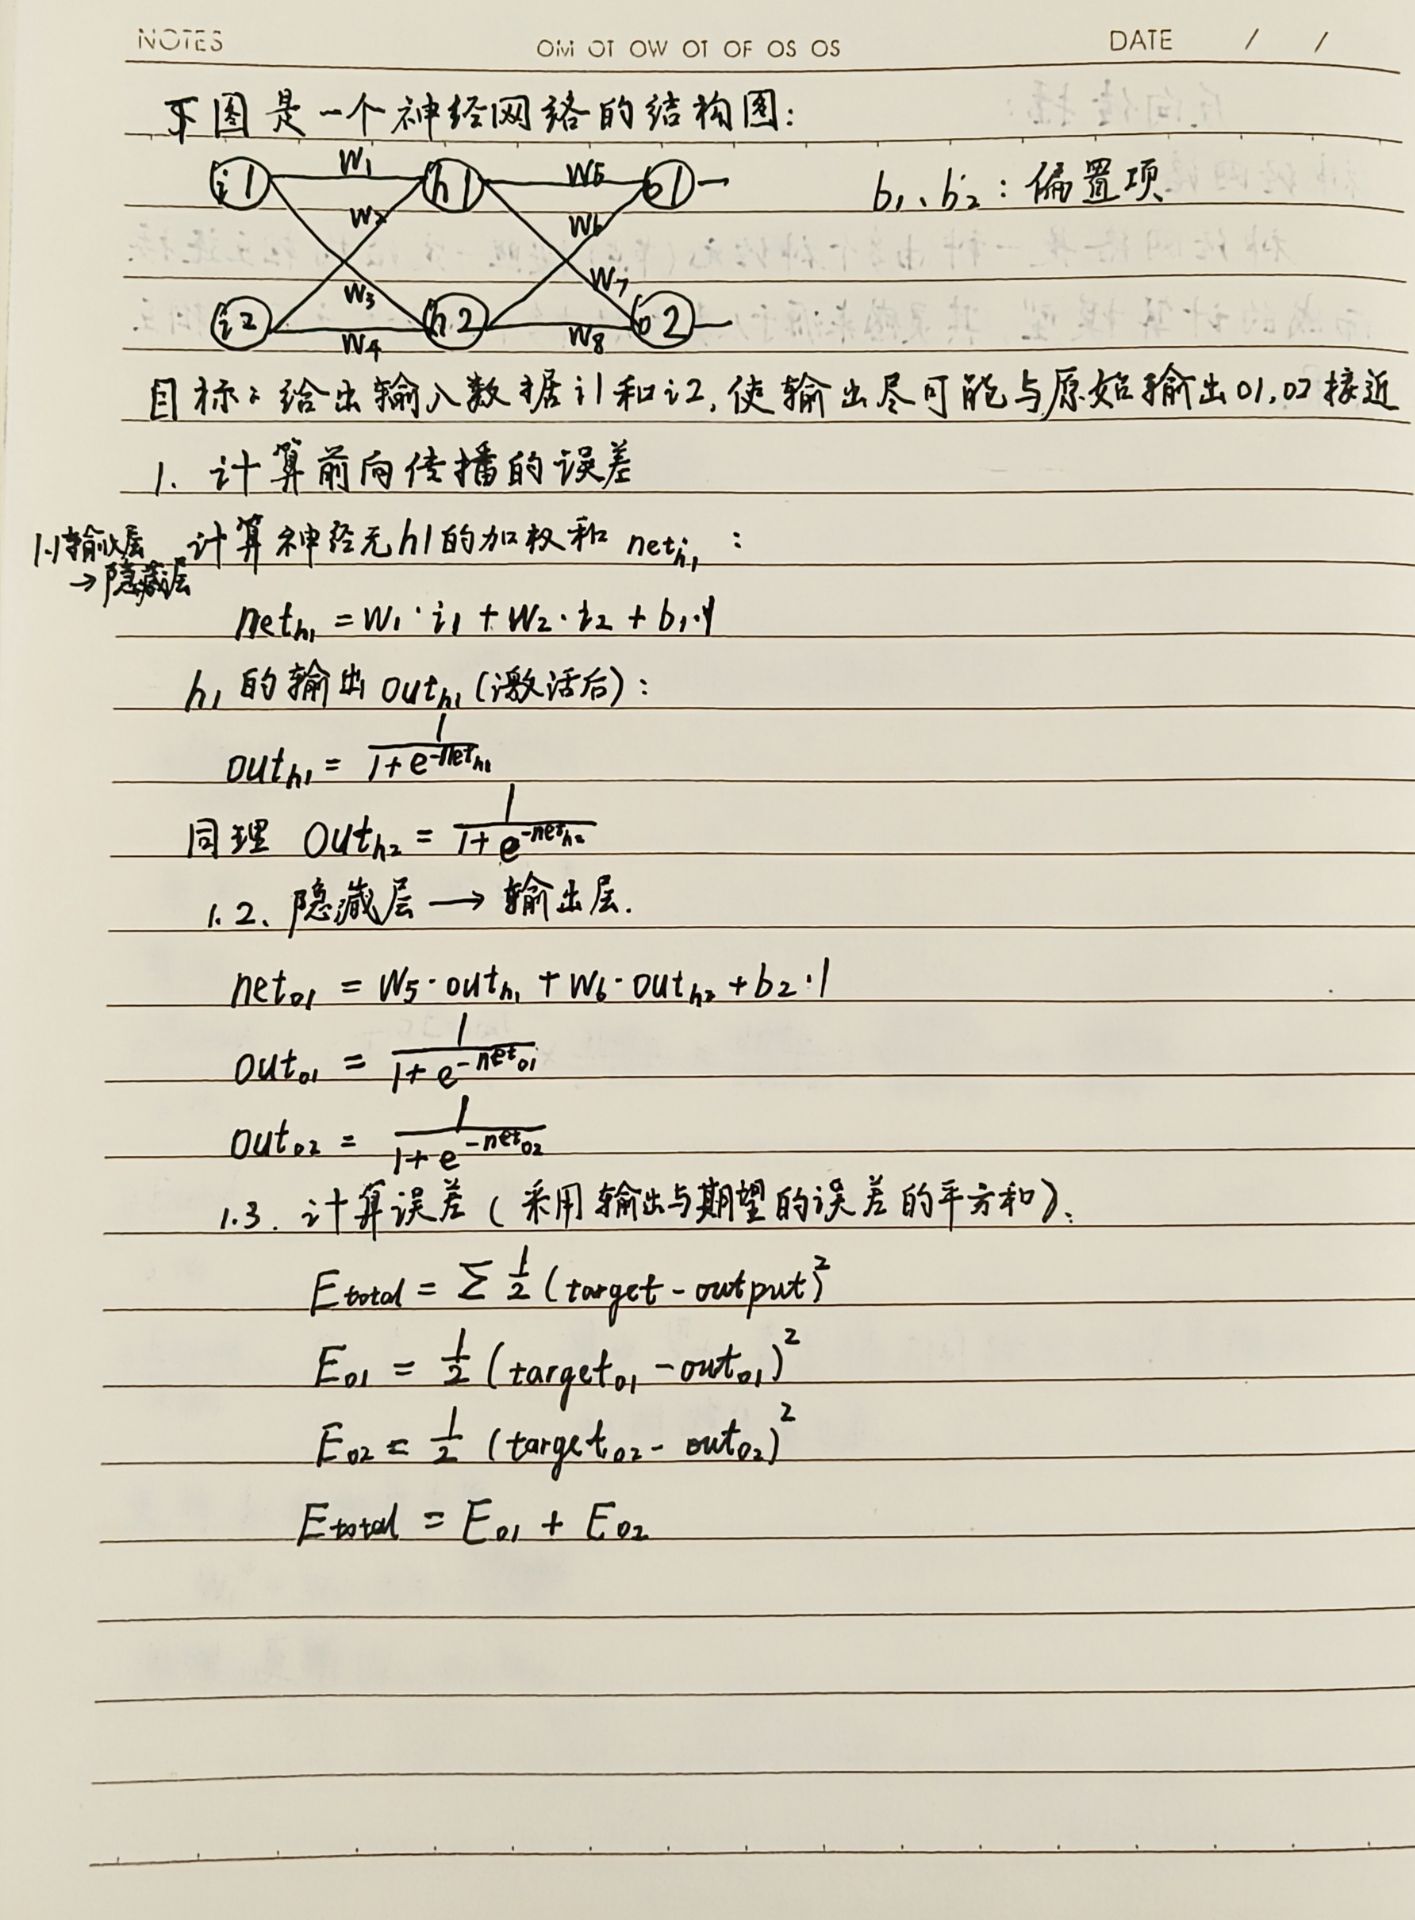 NOTES
OM OT OW OT OF OS OS
DATE / /
下图是一个神经网络的结构图:
i1 w1 h1 w5 o1
w2 w6
b₁、b₂:偏置项
w3 w7
i2 w4 h2 w8 o2
目标:给出输入数据i1和i2,使输出尽可能与原始输出o1,o2接近
1. 计算前向传播的误差
1.1输入层
→隐藏层
计算神经元h1的加权和 net_h₁ :
net_h₁ = w₁·i₁ + w₂·i₂ + b₁·1
h₁的输出out_h₁(激活后):
out_h₁ = 1/(1+e^(-net_h₁))
同理 out_h₂ = 1/(1+e^(-net_h₂))
1.2、隐藏层→输出层.
net_o1 = w5·out_h₁ + w6·out_h₂ + b₂·1
out_o1 = 1/(1+e^(-net_o1))
out_o2 = 1/(1+e^(-net_o2))
1.3. 计算误差(采用输出与期望的误差的平方和)、
E_total = Σ ½(target-output)²
E_o1 = ½(target_o1-out_o1)²
E_o2 = ½(target_o2-out_o2)²
E_total = E_o1 + E_o2